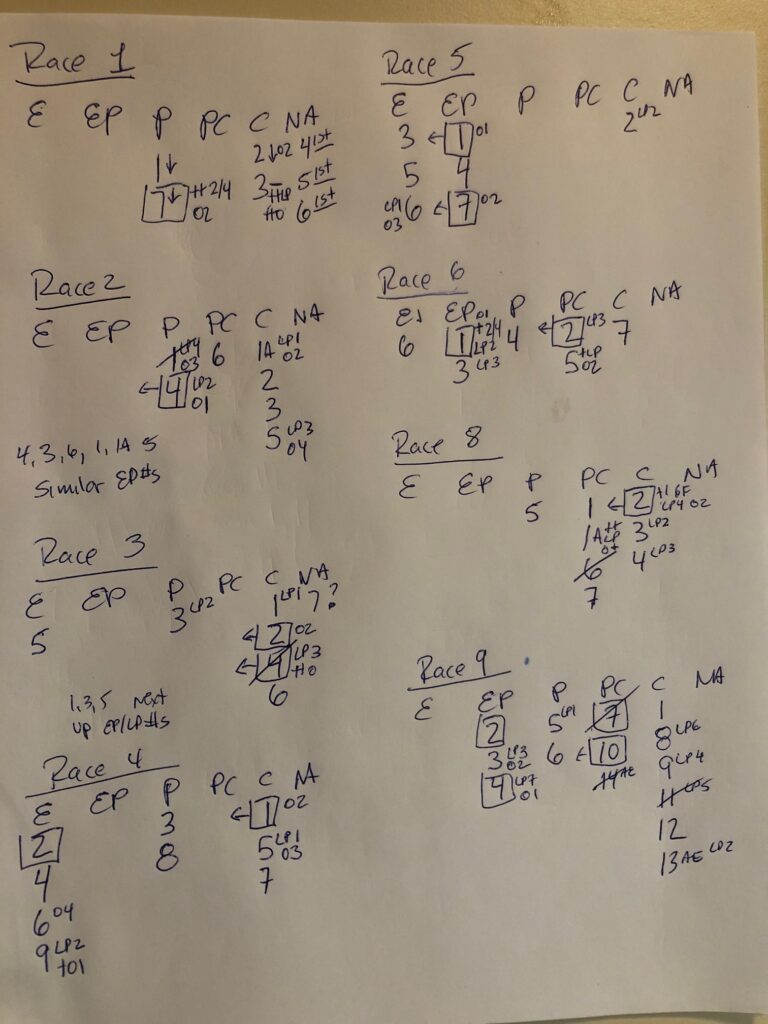 Race 1
E EP P PC C NA
1↓ 2↓02 4 1st
7↓ 02 3 5 1st
6 1st
Race 2
E EP P PC C NA
6 1A LP1 02
←4 LP2 01 2
3
5 LP3 04
4, 3, 6, 1, 1A 5
Similar EP#s
Race 3
E EP P PC C NA
5 3 LP2 1 LP1 7?
←2 02
←4 LP3
6
1, 3, 5 next
up EP/LP#s
Race 4
E EP P PC C NA
2 3 ←1 02
4 8 5 LP1 03
6 04 7
9 LP2
Race 5
E EP P PC C NA
3 ←1 01 2 LP2
5 4
LP1 03 6 ←7 02
Race 6
EP P PC C NA
6 1 LP2 4 ←2 LP3 7
3 LP3 5 02
Race 8
E EP P PC C NA
5 1 ←2 LP4 02
1A 3 LP2
6 4 LP3
7
Race 9
E EP P PC C NA
2 5 LP1 7 1
3 LP3 02 6 ←10 8 LP6
4 LP7 01 14 AE 9 LP4
11 LP5
12
13 AE LP2